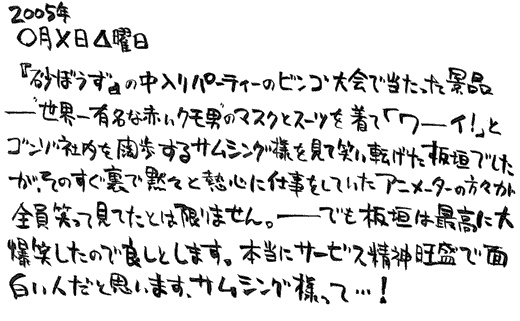 2005年
〇月×日△曜日
『砂ぼうず』の中入りパーティーのビンゴ大会で当たった景品
――“世界一有名な赤いクモ男”のマスクとスーツを着て「ワーイ!」と
ゴンゾ社内を闊歩するサムシング様を見て笑い転げた板垣でした
が、そのすぐ裏で黙々と熱心に仕事をしていたアニメーターの方々が
全員笑って見てたとは限りません。――でも板垣は最高に大
爆笑したので良しとします。本当にサービス精神旺盛で面
白い人だと思います、サムシング様って…!